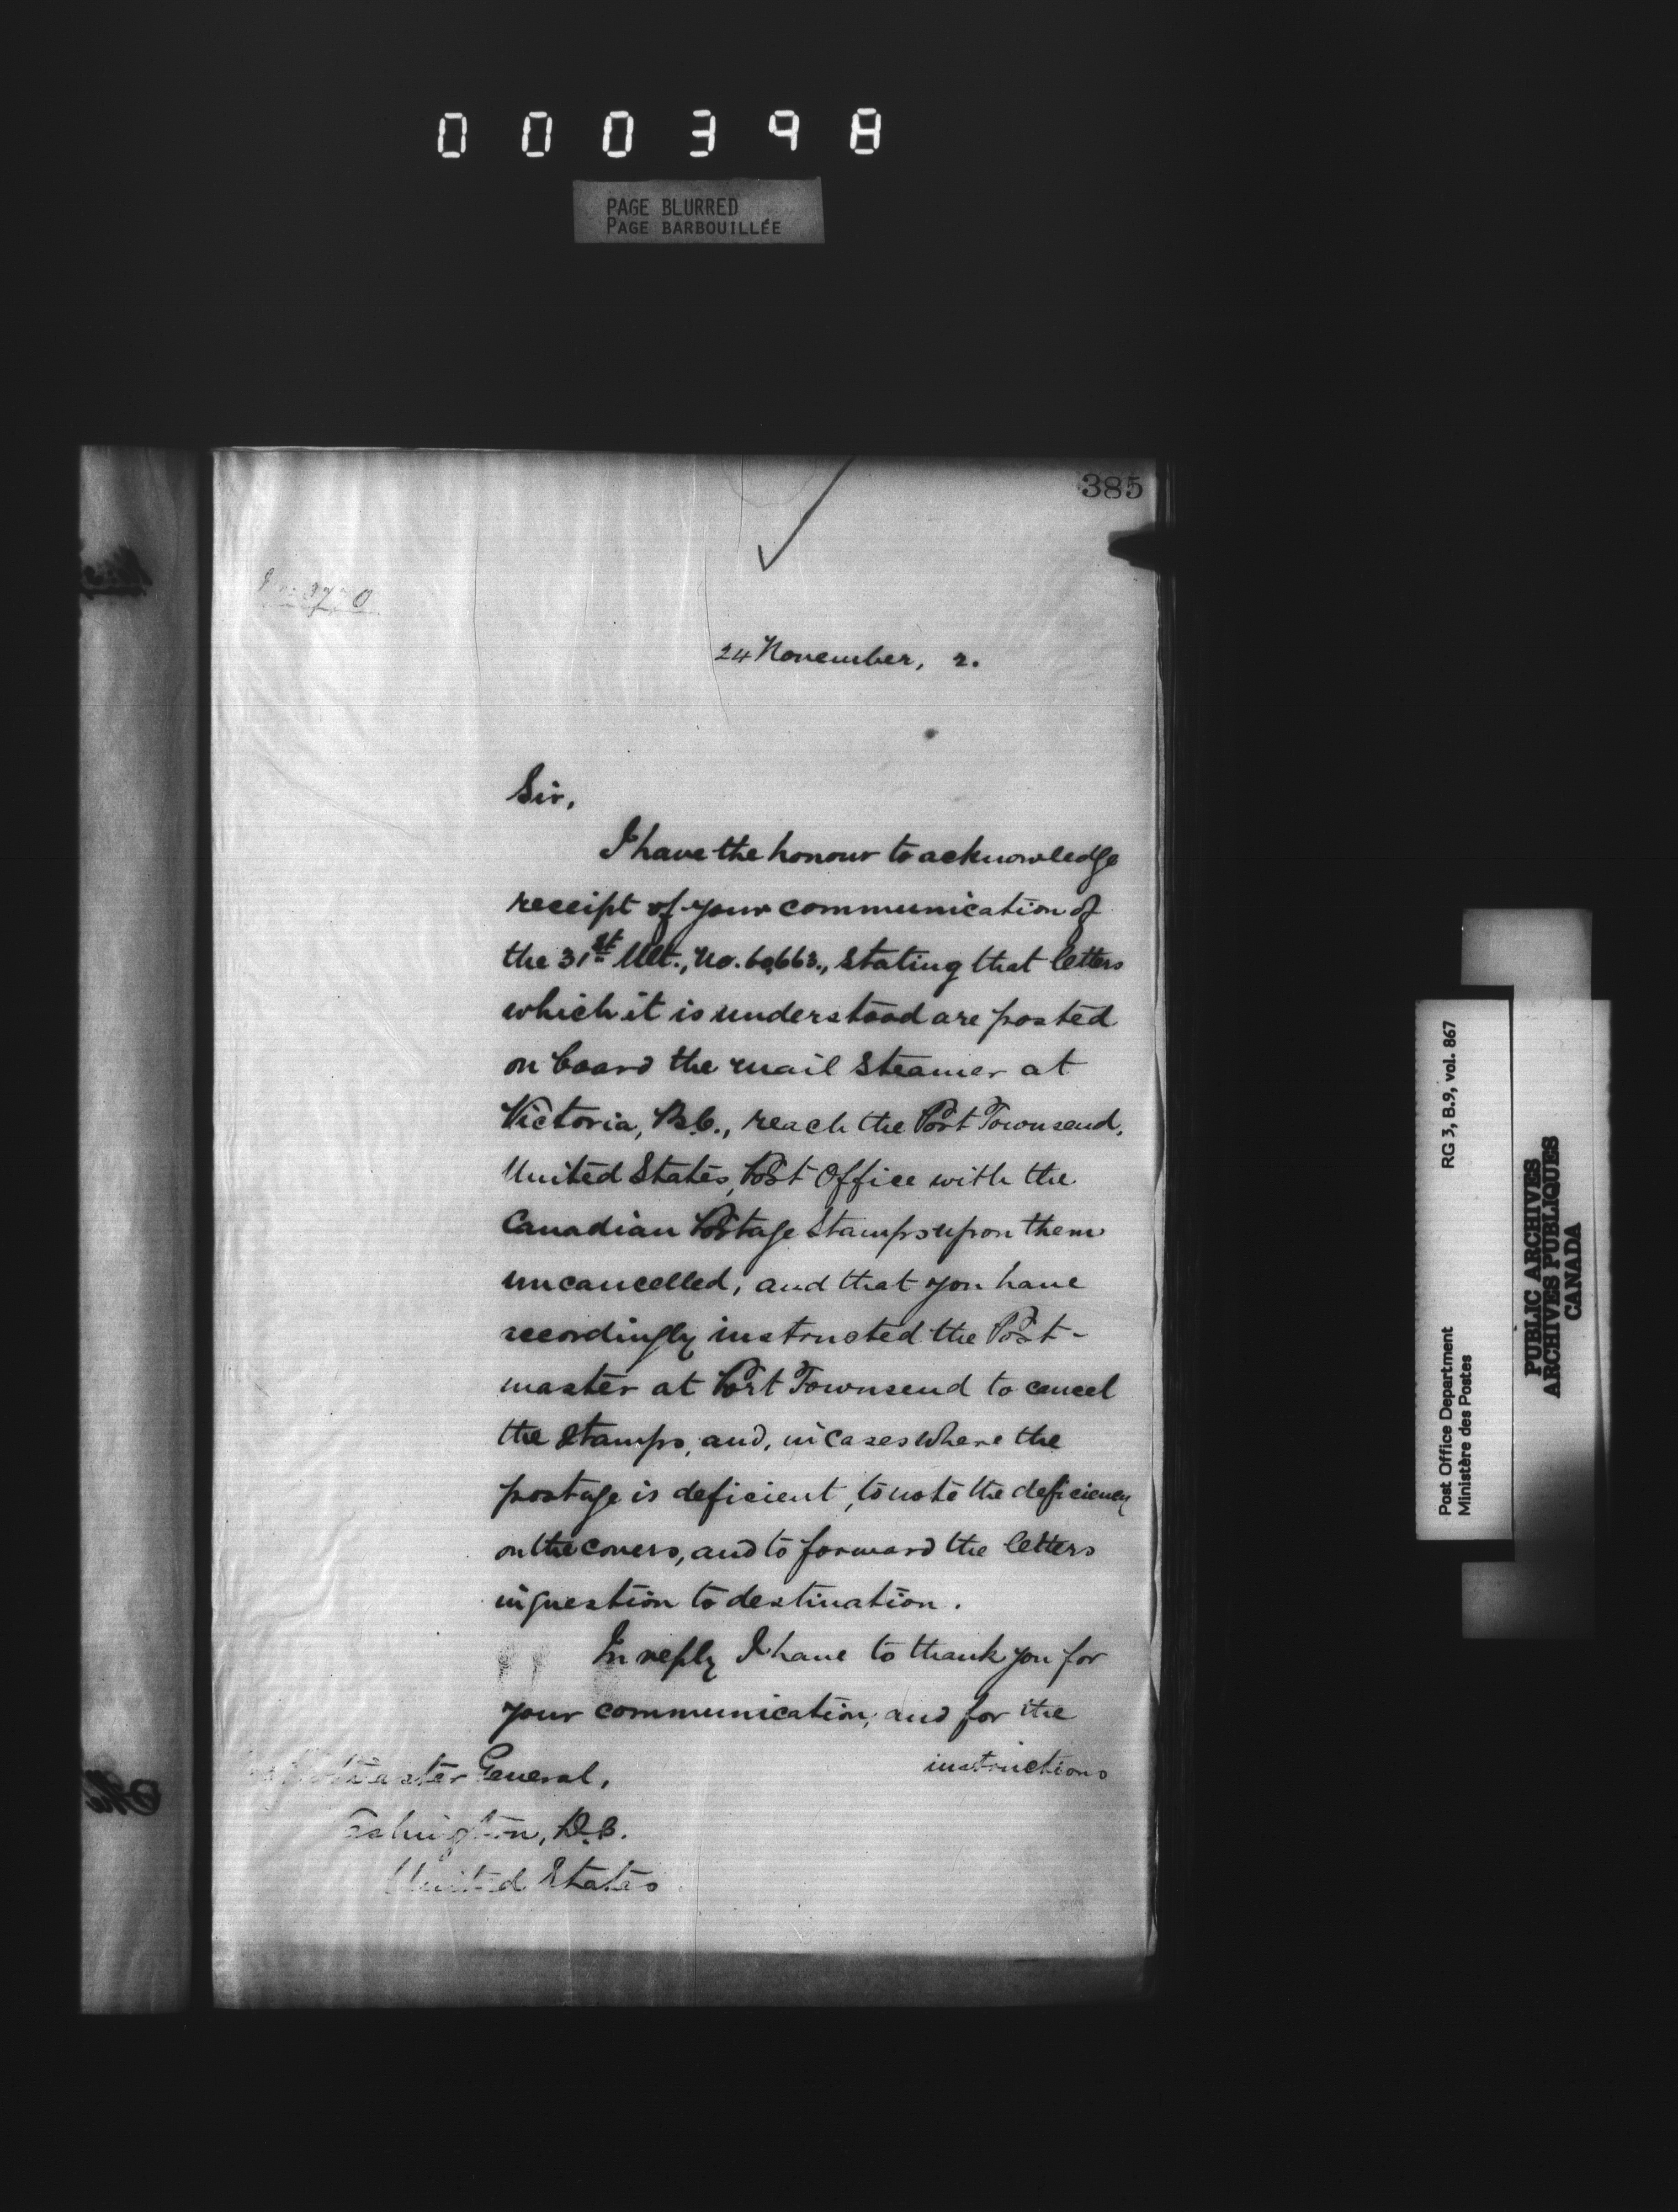 000398
PAGE BLURRED
PAGE BARBOUILLÉE
385
24 November, 2.
Sir,
I have the honour to acknowledge
receipt of your communication of
the 31st Ult., No. 60,663., stating that letters
which it is understood are posted
on board the mail steamer at
Victoria, B.C., reach the Port Townsend,
United States, Post Office with the
Canadian Postage Stamps upon them
uncancelled, and that you have
accordingly instructed the Post-
master at Port Townsend to cancel
the stamps, and, in cases where the
postage is deficient, to note the deficiency
on the covers, and to forward the letters
in question to destination.
In reply I have to thank you for
your communication, and for the
instructions
Postmaster General,
Washington, D.C.
United States
Post Office Department
Ministère des Postes
RG 3, B.9, vol. 867
PUBLIC ARCHIVES
ARCHIVES PUBLIQUES
CANADA